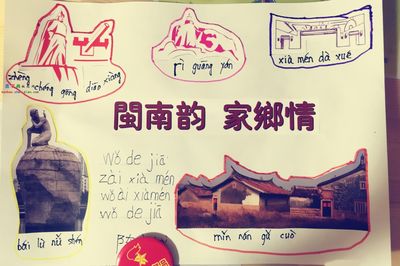 zhèng
chéng gōng
diāo xiàng
rì guāng yán
xià mén dà xué
閩南韵 家鄉情
Wǒ de jiā
zài xià mén
wǒ ài xiàmén
wǒ de jiā
bái lù nǚ shén
mǐn nán gǔ cuò